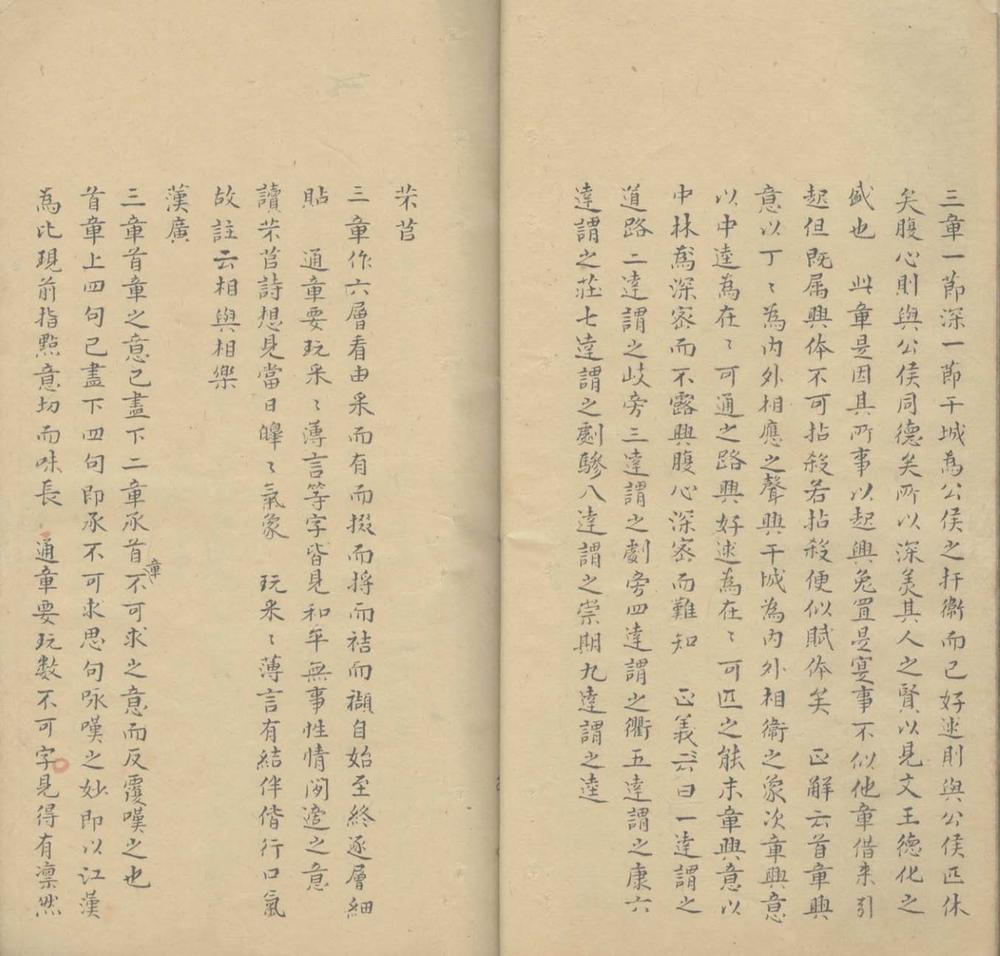 三章一節深一節干城為公侯之扞衞而已好逑則與公侯匹休
矣腹心則與公侯同德矣所以深美其人之賢以見文王德化之
盛也　此章是因其所事以起興兔罝是实事不似他章借来引
起但既属興体不可拈殺若拈殺便似賦体矣　正解云首章興
意以丁〻為内外相應之聲興干城為内外相衞之象次章興意
以中逵為在〻可通之路興好逑為在〻可匹之能末章興意以
中林為深宻而不露興腹心深宻而難知　正義云曰一達謂之
道路二達謂之岐旁三達謂之劇旁四達謂之衢五達謂之康六
達謂之莊七達謂之劇驂八達謂之崇期九達謂之逵
芣苢
三章作六層看由采而有而掇而捋而袺而襭自始至終逐層細
貼　通章要玩采〻薄言等字皆見和平無事性情閒適之意
讀芣苢詩想見當日皡〻氣象　玩采〻薄言有結伴偕行口氣
故註云相與相樂
漢廣
三章首章之意已盡下二章承首章不可求之意而反覆嘆之也
首章上四句已盡下四句即承不可求思句咏嘆之妙即以江漢
為比現前指點意切而味長　通章要玩数不可字見得有凛然